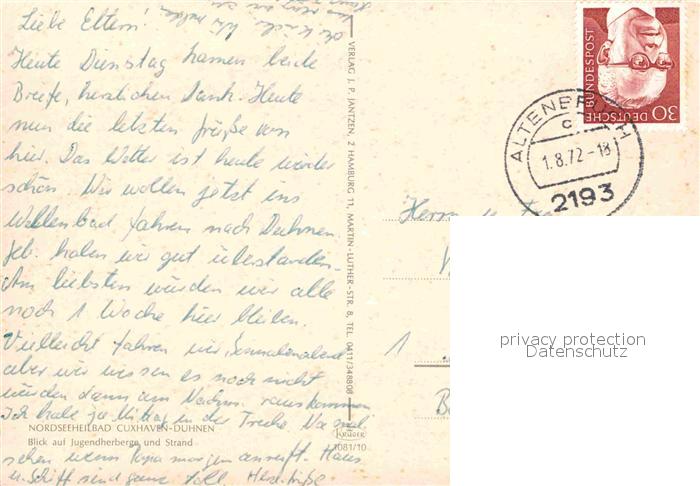 Liebe Eltern!
Heute Dienstag kamen beide
Briefe, herzlichen Dank. Heute
nun die letzten Grüße von
hier. Das Wetter ist heute wieder
schön. Wir wollen jetzt ins
Wellenbad fahren nach Duhnen.
Geb. haben wir gut überstanden.
Am liebsten würden wir alle
noch 1 Woche hier bleiben.
Vielleicht fahren wir Sonnabend
aber wir wissen es noch nicht
würden dann am Nachm. rauskommen
Ich habe ja Mittag in der Truhe. Na mal
NORDSEEHEILBAD CUXHAVEN-DUHNEN
Blick auf Jugendherberge und Strand
sehen wenn Papa morgen anruft. Haus
u. Schiff sind ganz toll. Herzl. Grüße
VERLAG J. P. JANTZEN, 2 HAMBURG 11, MARTIN-LUTHER-STR. 8, TEL. 0411/348808
Krüger
1081/10
30
DEUTSCHE
BUNDESPOST
ALTENBRUCH
c
1.8.72-18
2193
Herrn
1
privacy protection
Datenschutz